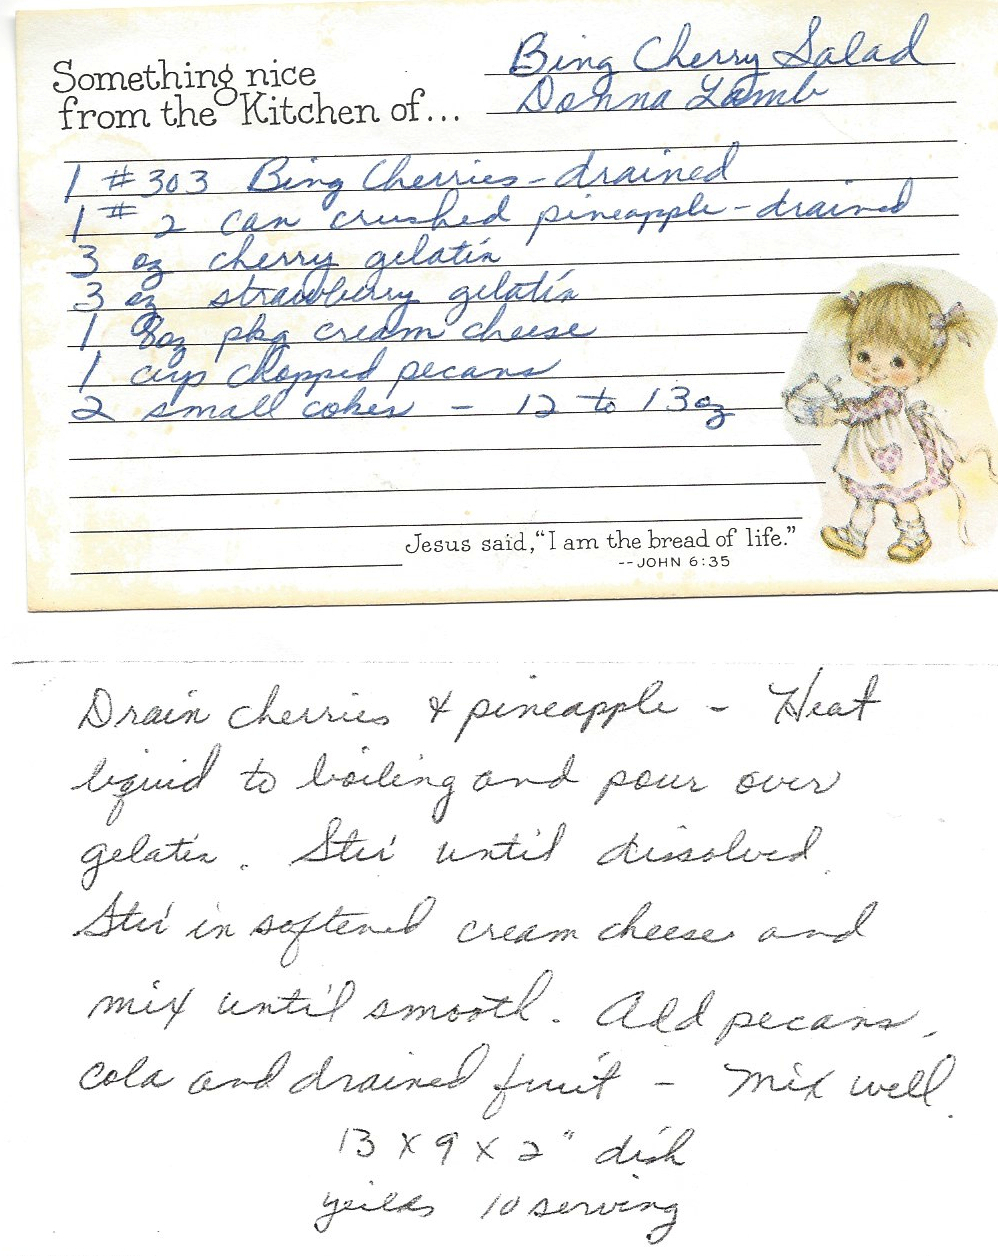 Bing Cherry Salad
Something nice
from the Kitchen of...
Donna Lamb
1 #303 Bing Cherries - drained
1 # 2 can crushed pineapple - drained
3 oz cherry gelatin
3 oz strawberry gelatin
1 8oz pkg cream cheese
1 cup chopped pecans
2 small cokes - 12 to 13oz
Jesus said, "I am the bread of life."
--JOHN 6:35
Drain cherries & pineapple - Heat
liquid to boiling and pour over
gelatin. Stir until dissolved.
Stir in softened cream cheese and
mix until smooth. Add pecans,
cola and drained fruit - Mix well.
13 x 9 x 2" dish
yeilds 10 serving